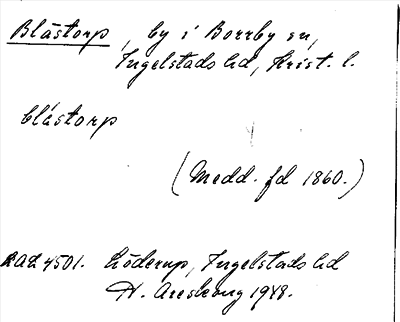 Blåstorp, by i Borrby sn,
Ingelstads hd, Krist. l.
blástorp
(Medd. fd 1860.)
4501. Löderup, Ingelstads hd
1948.